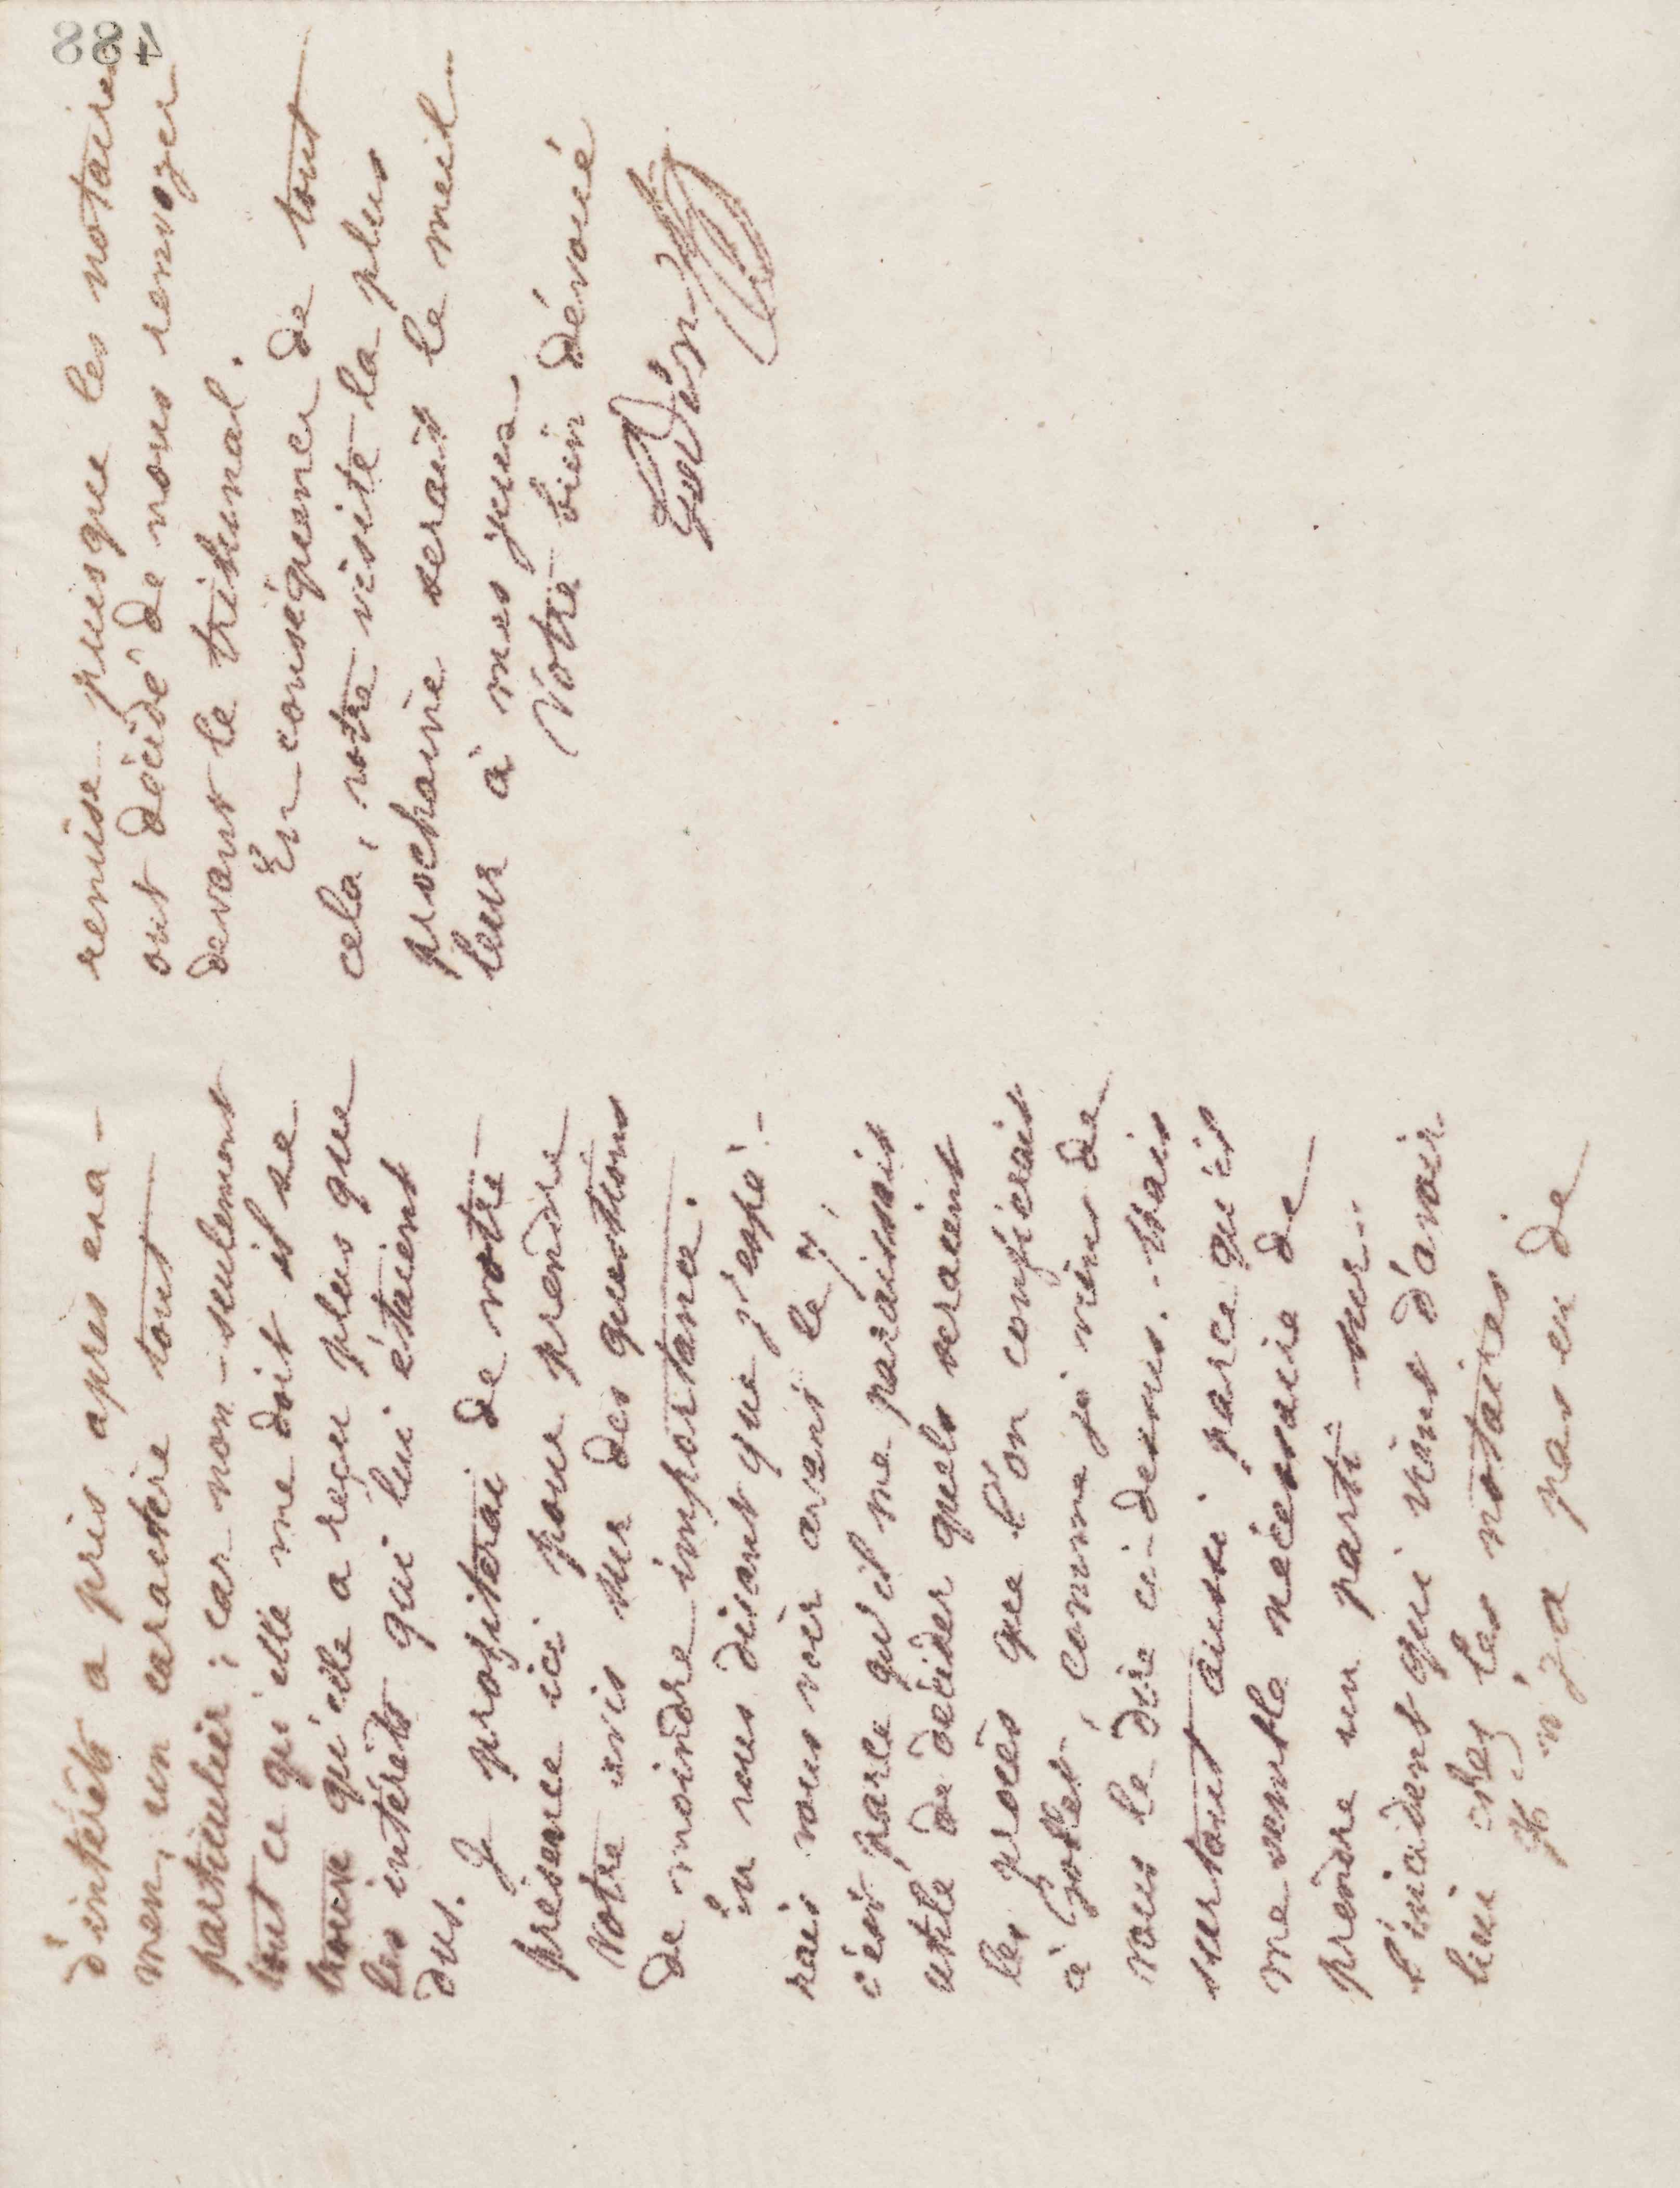 d'intérêts a pris après exa-
men, un caractère tout
particulier; car non-seulement
tout ce qu'elle me doit il se
trouve qu'elle a reçu plus que
les intérêts qui lui étaient
dus.
Je profiterai de votre
présence ici pour prendre
votre avis sur des questions
de moindre importance.
En vous disant que j'espé-
rais vous voir avant le 7,
c'est parce qu'il me paraissait
utile de décider quels seraient
les procès que l'on confierait
à Godet, comme je viens de
vous le dire ci-dessus. Mais
surtout aussi parce qu'il
me semble nécessaire de
prendre un parti sur
l'incident qui vient d'avoir
lieu chez les notaires
Il n'y a pas eu de
remise puisque les notaires
ont décidé de nous renvoyer
devant le tribunal.
En conséquence de tout
cela, votre visite la plus
prochaine serait le meil
leur à mes yeux
Votre bien dévoué
Godin
488